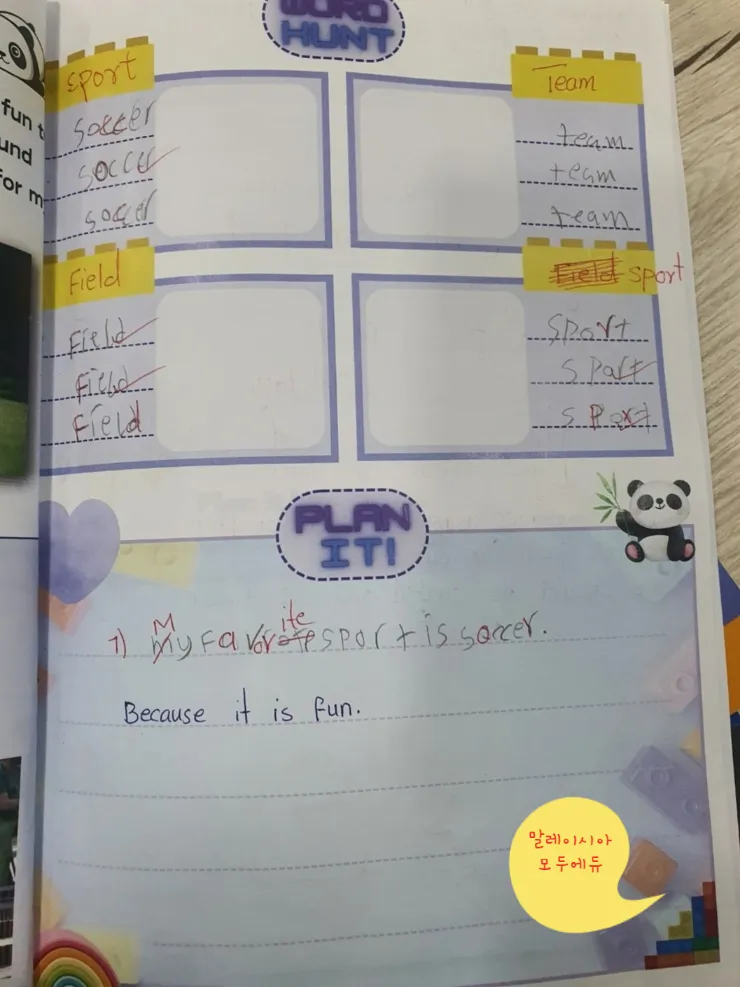 WORD
HUNT
fun t
und
for m
sport
soccer
soccer
soccer
Team
team
team
team
Field
Field
Field
Field
Field sport
sport
sport
sport
PLAN
IT!
1) My favorite sport is soccer.
Because it is fun.
말레이시아
모두에듀